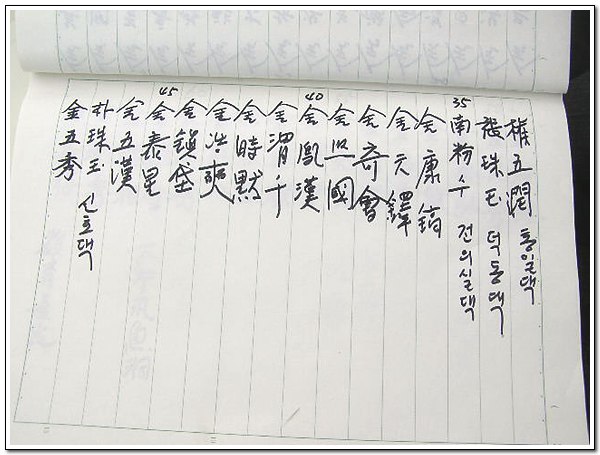 權五潤 홍일댁
裵珠玉 덕동댁
35
南粉수 전의실댁
金康鎬
金元鐸
金齊會
金熙國
40
金胤漢
金渭千
金時默
金洪奭
金鎭岱
45
金泰星
金五漢
朴珠玉 신호댁
金五秀